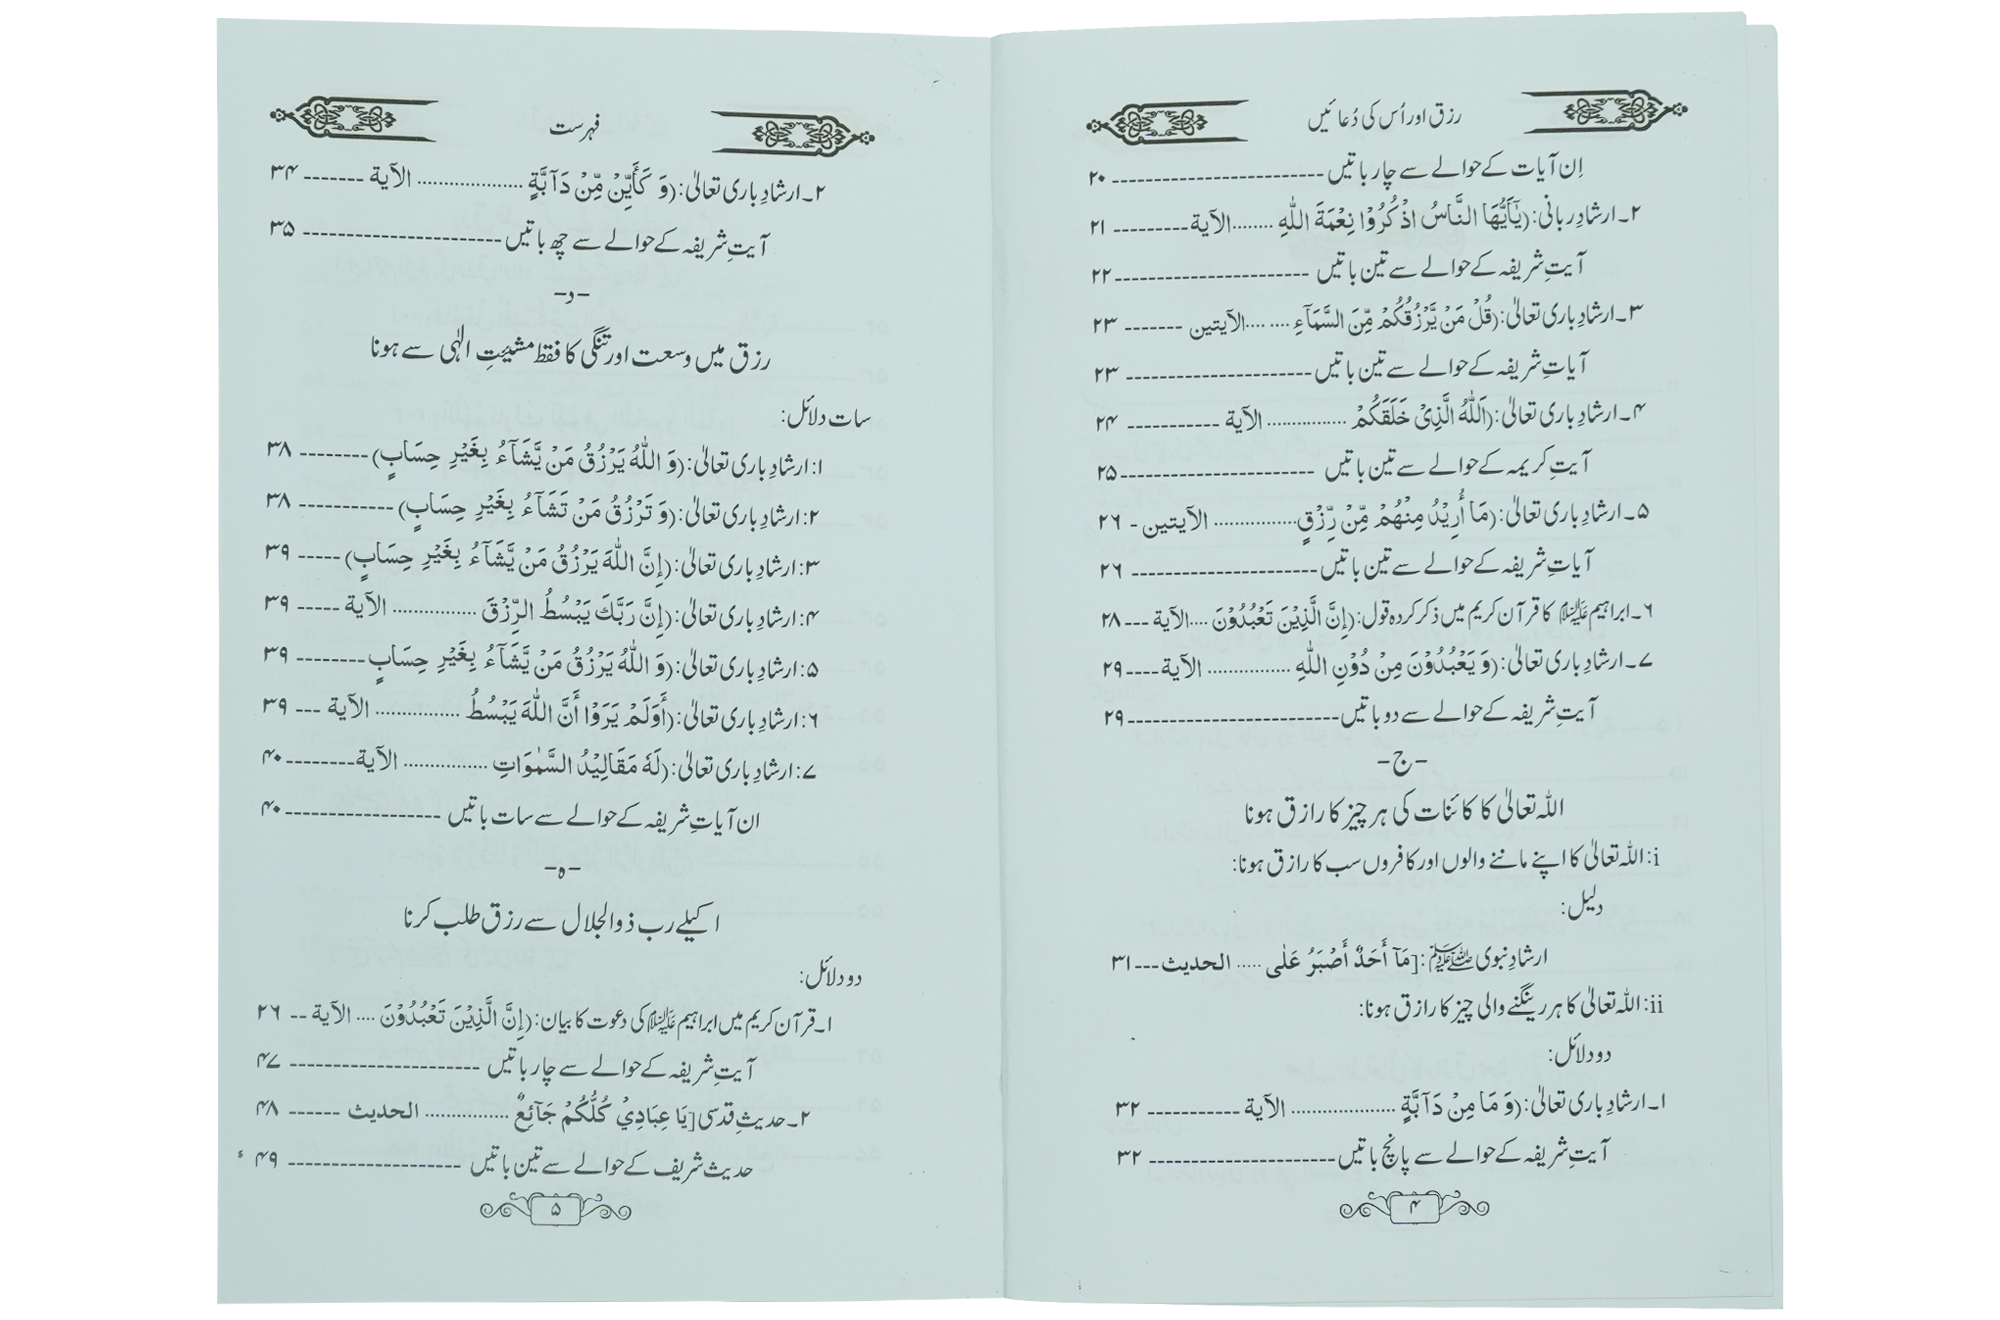 رزق اور اُس کی دُعائیں
اِن آیات کے حوالے سے چار باتیں ------------------------- ۲۰
۲۔ارشادِ ربانی: (يٰٓاَيُّهَا النَّاسُ اذْكُرُوْا نِعْمَةَ اللهِ ........ الآية --------- ۲۱
آیتِ شریفہ کے حوالے سے تین باتیں ----------------------- ۲۲
۳۔ارشادِ باری تعالیٰ: (قُلْ مَنْ يَّرْزُقُكُمْ مِّنَ السَّمَآءِ ........ الآيتين ------- ۲۳
آیاتِ شریفہ کے حوالے سے تین باتیں ---------------------- ۲۳
۴۔ارشادِ باری تعالیٰ: (اَللهُ الَّذِيْ خَلَقَكُمْ ................ الآية ----------- ۲۴
آیتِ کریمہ کے حوالے سے تین باتیں ----------------------- ۲۵
۵۔ارشادِ باری تعالیٰ: (مَا أُرِيْدُ مِنْهُمْ مِّنْ رِّزْقٍ ................ الآيتين - ۲۶
آیاتِ شریفہ کے حوالے سے تین باتیں ---------------------- ۲۶
۶۔ابراہیم علیہ السلام کا قرآن کریم میں ذکر کردہ قول: (إِنَّ الَّذِيْنَ تَعْبُدُوْنَ .... الآية --- ۲۸
۷۔ارشادِ باری تعالیٰ: (وَ يَعْبُدُوْنَ مِنْ دُوْنِ اللهِ ................ الآية ---- ۲۹
آیتِ شریفہ کے حوالے سے دو باتیں ------------------------- ۲۹
-ج-
اللہ تعالیٰ کا کائنات کی ہر چیز کا رازق ہونا
i: اللہ تعالیٰ کا اپنے ماننے والوں اور کافروں سب کا رازق ہونا:
دلیل:
ارشادِ نبوی ﷺ: [مَآ أَحَدٌ أَصْبَرُ عَلٰى ..... الحديث --- ۳۱
ii: اللہ تعالیٰ کا ہر رینگنے والی چیز کا رازق ہونا:
دو دلائل:
۱۔ارشادِ باری تعالیٰ: (وَ مَا مِنْ دَآبَّةٍ .................... الآية ----------- ۳۲
آیتِ شریفہ کے حوالے سے پانچ باتیں ---------------------- ۳۲
۴
فہرست
۲۔ارشادِ باری تعالیٰ: (وَ كَأَيِّنْ مِّنْ دَآبَّةٍ .................... الآية ------- ۳۴
آیتِ شریفہ کے حوالے سے چھ باتیں ----------------------- ۳۵
-د-
رزق میں وسعت اور تنگی کا فقط مشیتِ الٰہی سے ہونا
سات دلائل:
۱: ارشادِ باری تعالیٰ: (وَ اللهُ يَرْزُقُ مَنْ يَّشَآءُ بِغَيْرِ حِسَابٍ) -------- ۳۸
۲: ارشادِ باری تعالیٰ: (وَ تَرْزُقُ مَنْ تَشَآءُ بِغَيْرِ حِسَابٍ) ----------- ۳۸
۳: ارشادِ باری تعالیٰ: (إِنَّ اللهَ يَرْزُقُ مَنْ يَّشَآءُ بِغَيْرِ حِسَابٍ) ----- ۳۹
۴: ارشادِ باری تعالیٰ: (إِنَّ رَبَّكَ يَبْسُطُ الرِّزْقَ ................ الآية ----- ۳۹
۵: ارشادِ باری تعالیٰ: (وَ اللهُ يَرْزُقُ مَنْ يَّشَآءُ بِغَيْرِ حِسَابٍ -------- ۳۹
۶: ارشادِ باری تعالیٰ: (أَوَلَمْ يَرَوْا أَنَّ اللهَ يَبْسُطُ ................ الآية --- ۳۹
۷: ارشادِ باری تعالیٰ: (لَهٗ مَقَالِيْدُ السَّمٰوَاتِ ................ الآية -------- ۴۰
ان آیاتِ شریفہ کے حوالے سے سات باتیں ------------------ ۴۰
-ہ-
اکیلے رب ذوالجلال سے رزق طلب کرنا
دو دلائل:
۱۔قرآن کریم میں ابراہیم علیہ السلام کی دعوت کا بیان: (إِنَّ الَّذِيْنَ تَعْبُدُوْنَ .... الآية -- ۲۶
آیتِ شریفہ کے حوالے سے چار باتیں ---------------------- ۴۷
۲۔حدیثِ قدسی [يَا عِبَادِيْ كُلُّكُمْ جَآئِعٌ ................ الحديث ------ ۴۸
حدیث شریف کے حوالے سے تین باتیں -------------------- ۴۹
۵